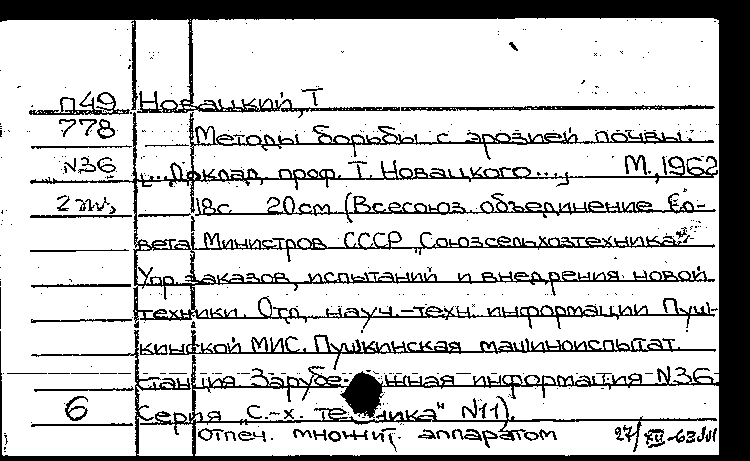 П49 Новацкий, Т
778 Методы борьбы с эрозией почвы.
N36 [...Доклад проф. Т. Новацкого...] М., 1962
18с 20см (Всесоюз. объединение Со-
вета Министров СССР „Союзсельхозтехника"
Упр. заказов, испытаний и внедрения новой
техники. Отд. науч.-техн. информации Пуш-
кинской МИС. Пушкинская машиноиспытат.
станция Зарубежная информация N36.
6 Серия „С.-х. техника" N11).
отпеч. множит. аппаратом 27/XII-63